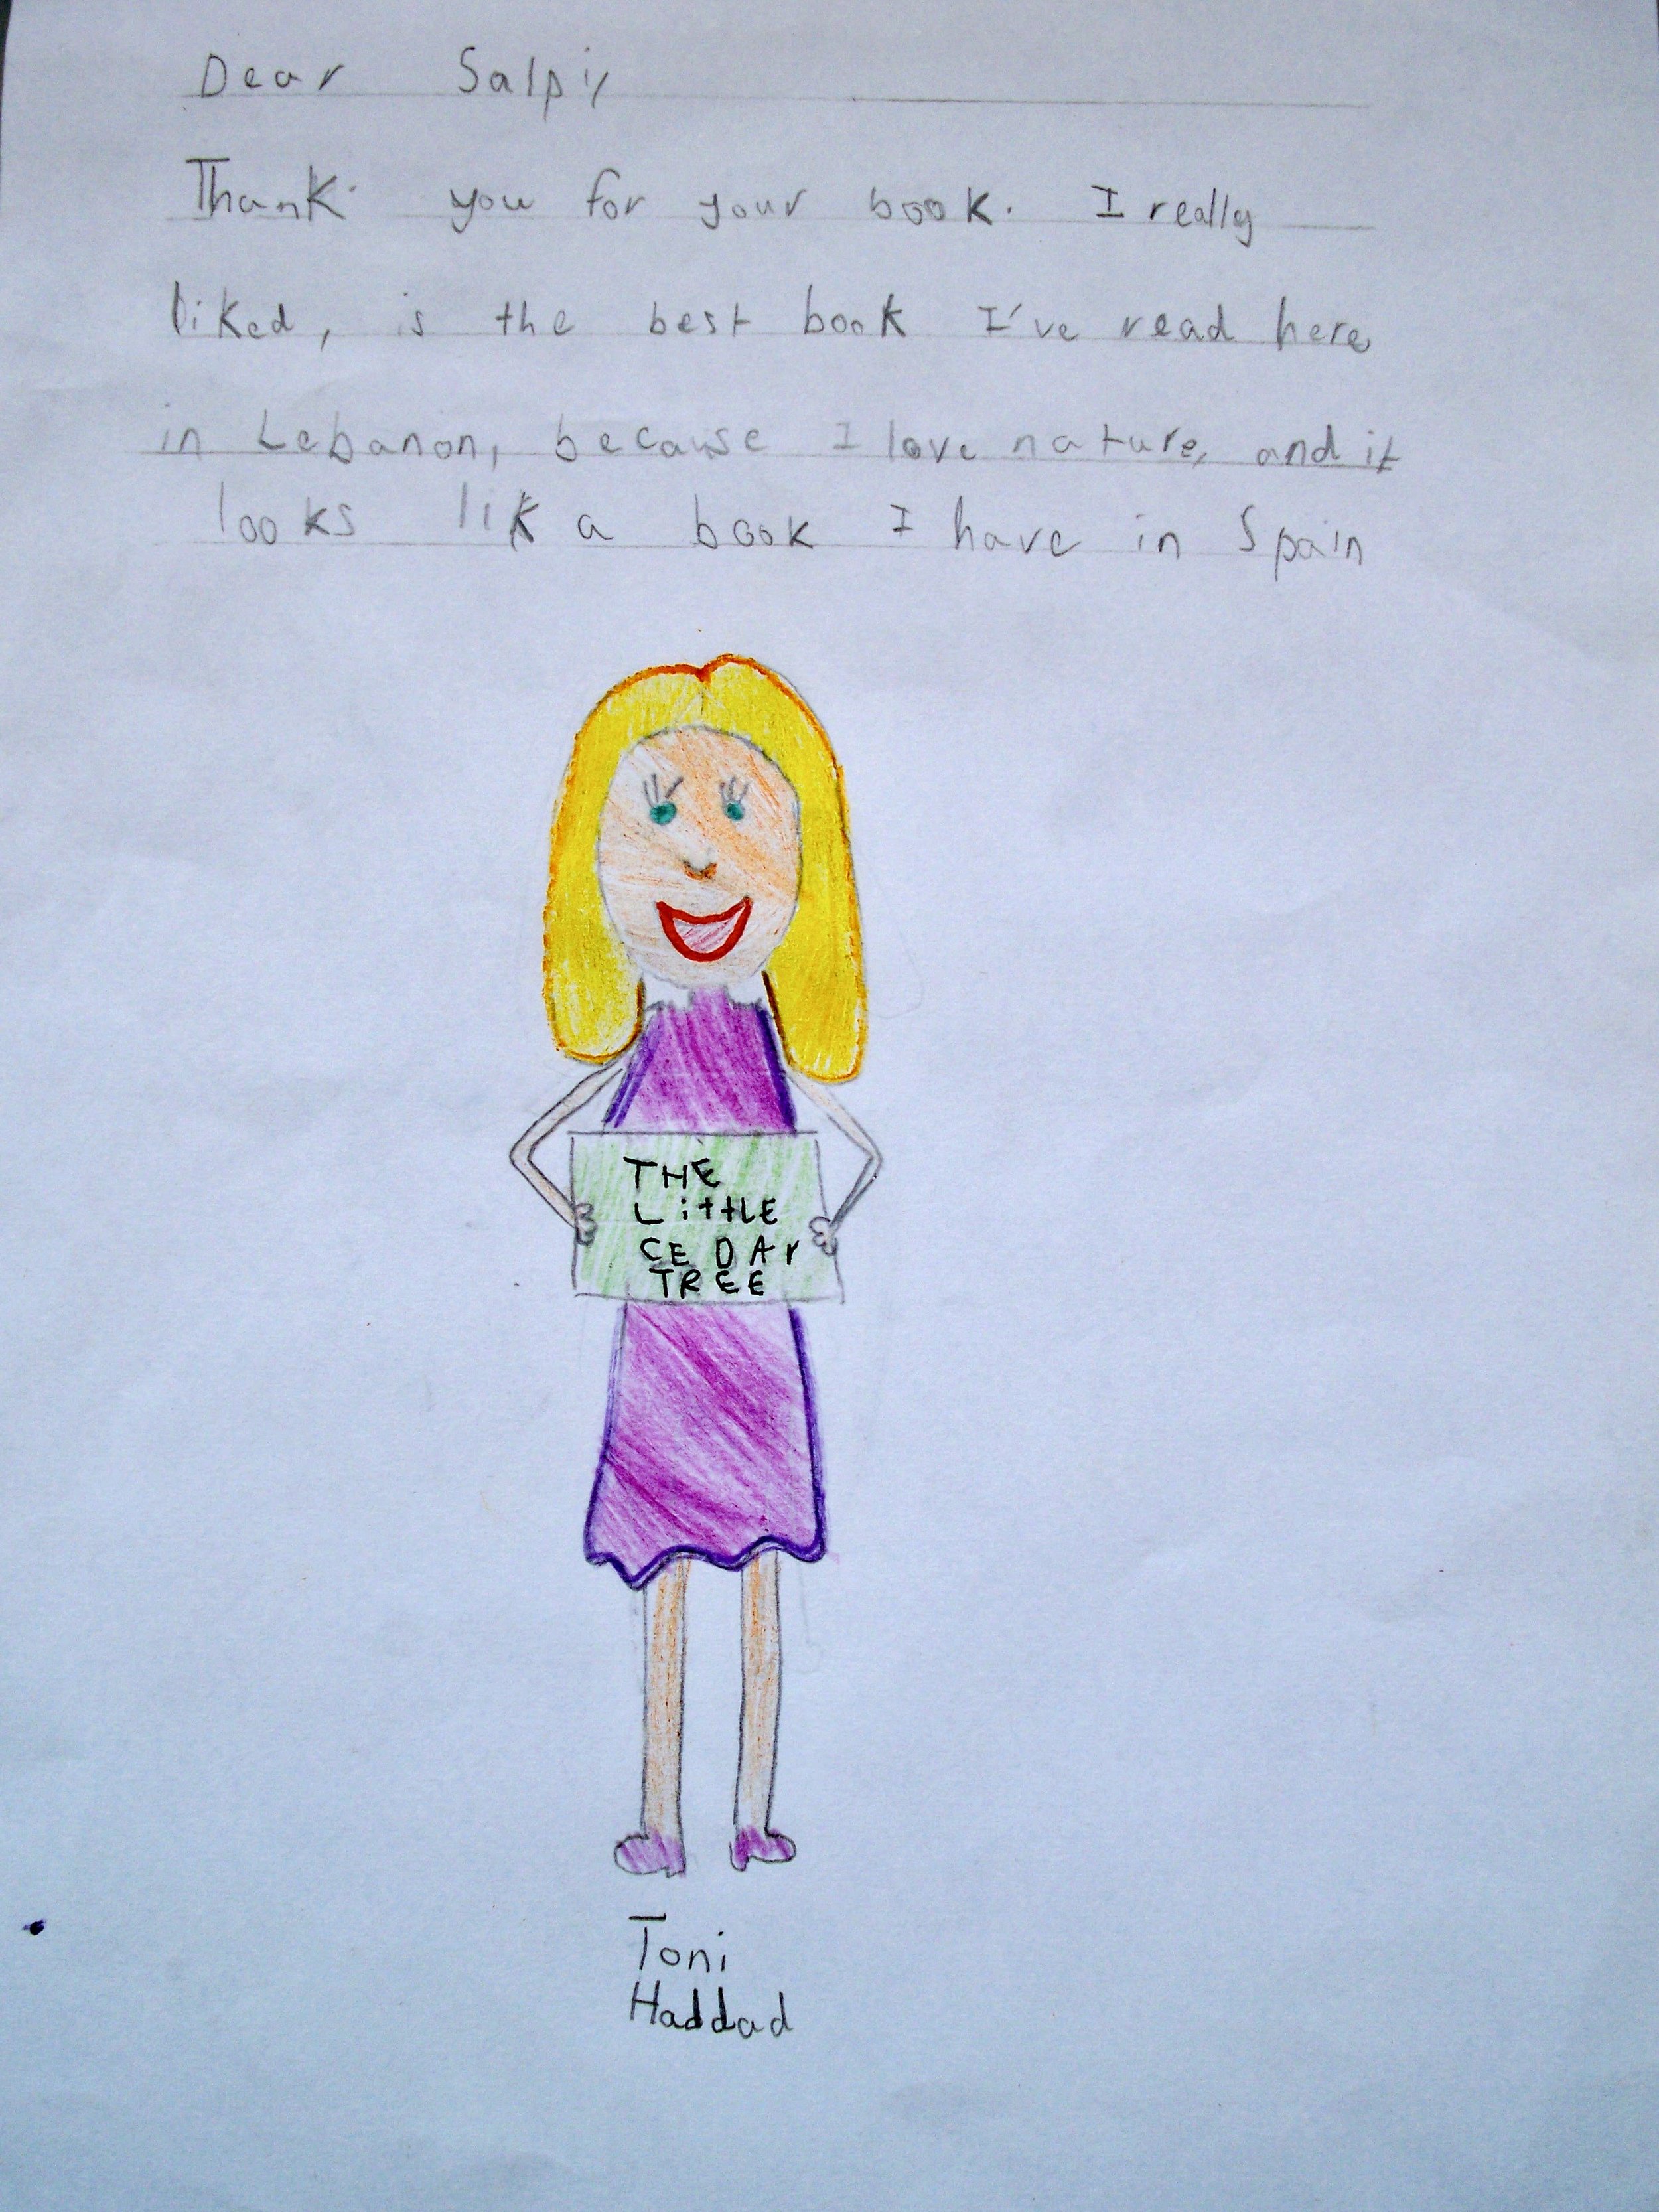 Dear Salpi,
Thank you for your book. I really
liked, is the best book I've read here
in Lebanon, because I love nature, and it
looks lik a book I have in Spain
THE
LittLE
CEDAr
TREE
Toni
Haddad